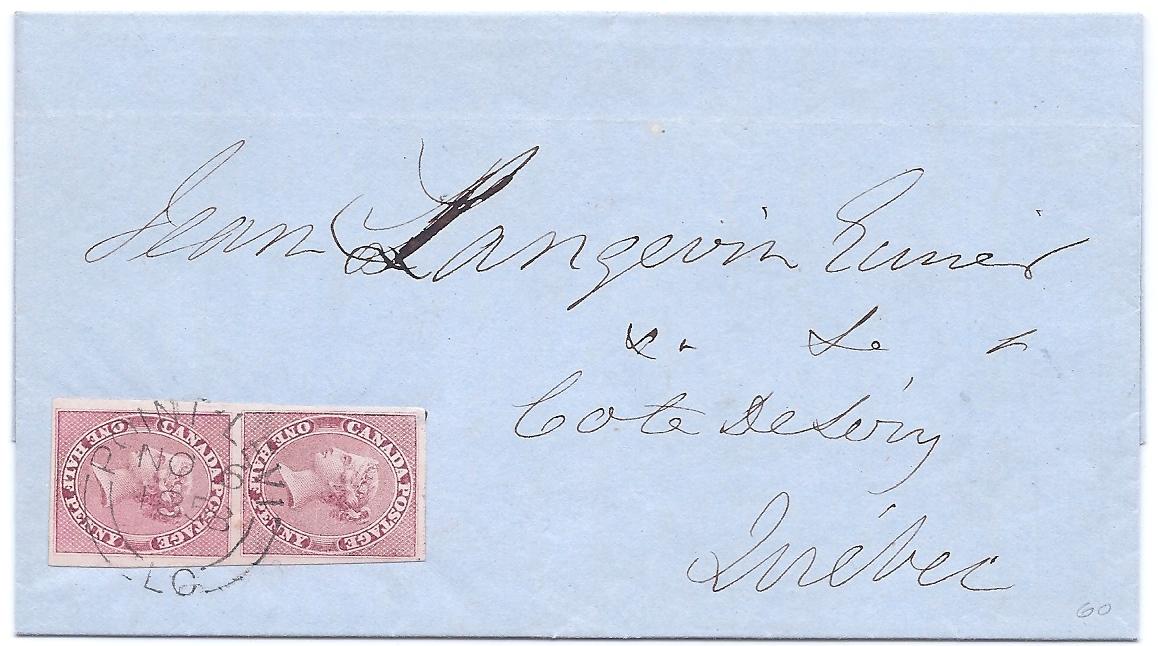 Jean Langevin Ecuier
&. &. &
Cote De Léry
Québec
CANADA POSTAGE
ONE HALF PENNY
CANADA POSTAGE
ONE HALF PENNY
POINT-LEVI
NO
LC
60